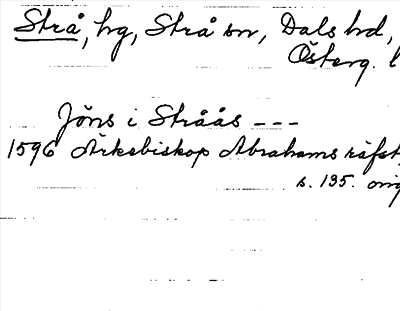 Strå, hg, Strå sn, Dals hd,
Österg. l
Jöns i Stråås ---
1596 Ärkebiskop Abrahams räfst,
s. 135. orig